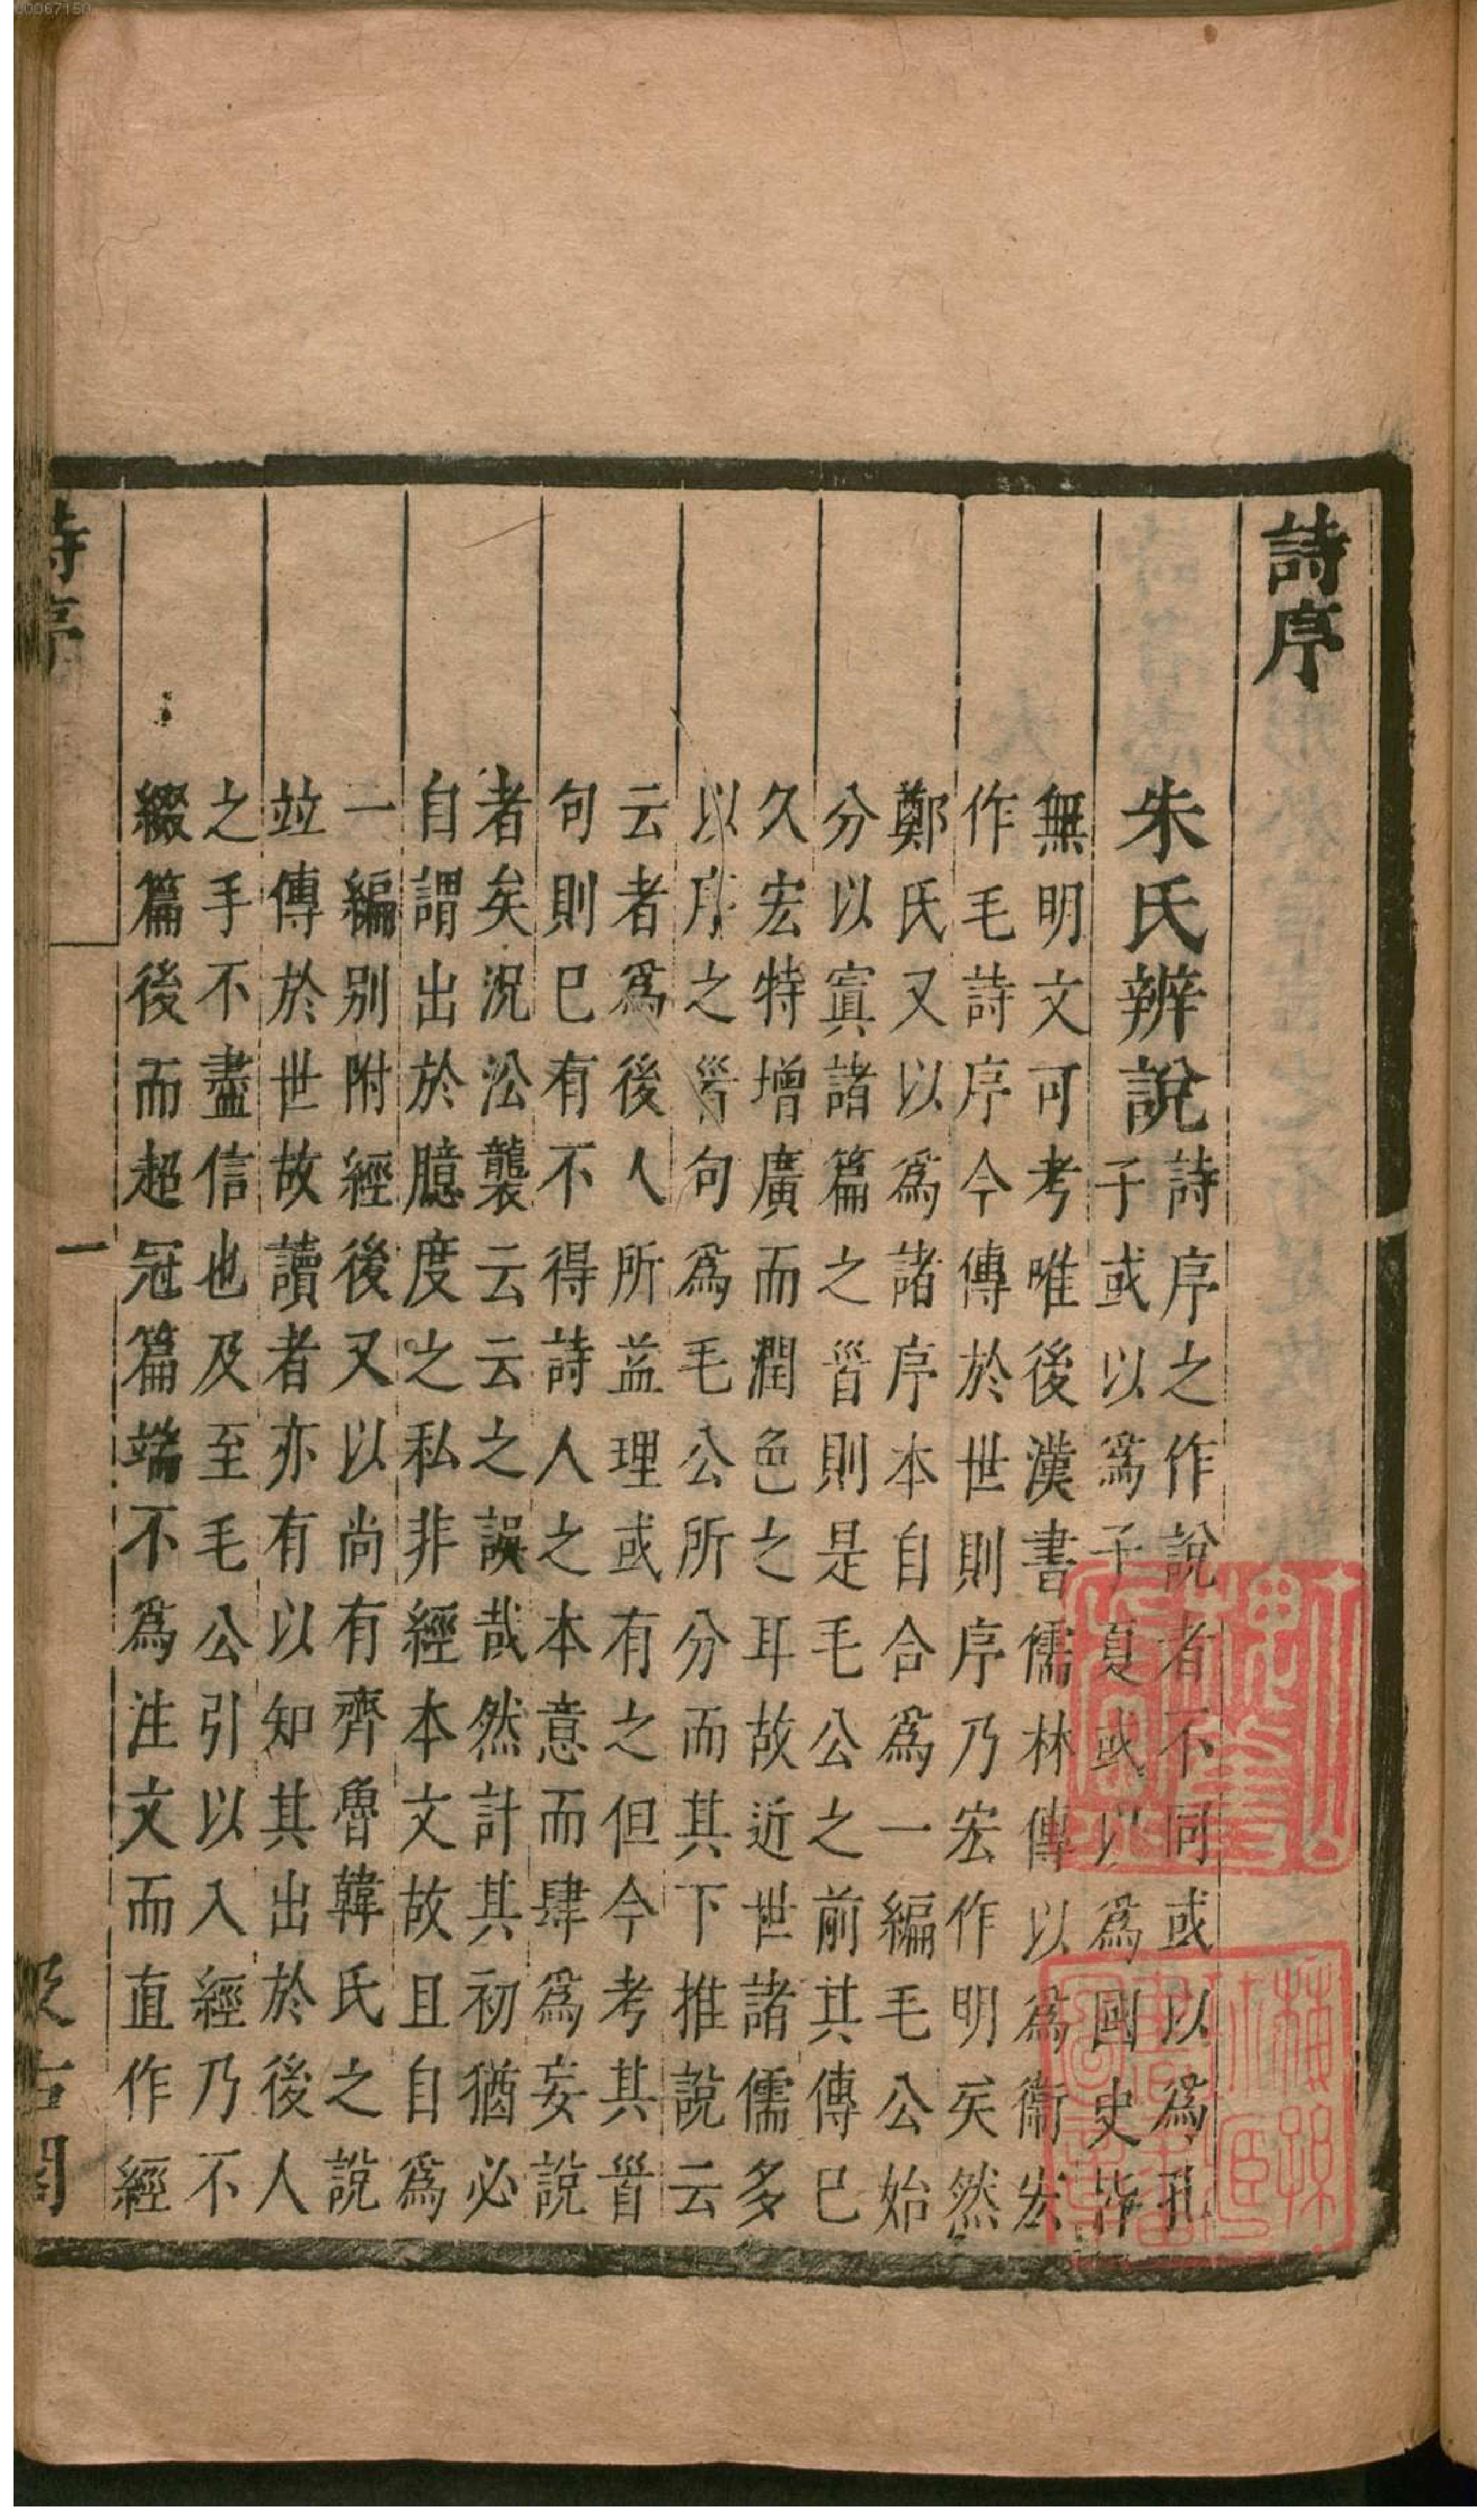 詩序
朱氏辨說
詩序之作說者不同或以爲孔
子或以爲子夏或以爲國史皆
無明文可考唯後漢書儒林傳以爲衞宏
作毛詩序今傳於世則序乃宏作明矣然
鄭氏又以爲諸序本自合爲一編毛公始
分以寘諸篇之首則是毛公之前其傳已
久宏特增廣而潤色之耳故近世諸儒多
以序之首句爲毛公所分而其下推說云
云者爲後人所益理或有之但今考其首
句則已有不得詩人之本意而肆爲妄說
者矣況沿襲云云之誤哉然計其初猶必
自謂出於臆度之私非經本文故且自爲
一編別附經後又以尚有齊魯韓氏之說
竝傳於世故讀者亦有以知其出於後人
之手不盡信也及至毛公引以入經乃不
綴篇後而超冠篇端不爲注文而直作經
詩序
一
汲古閣